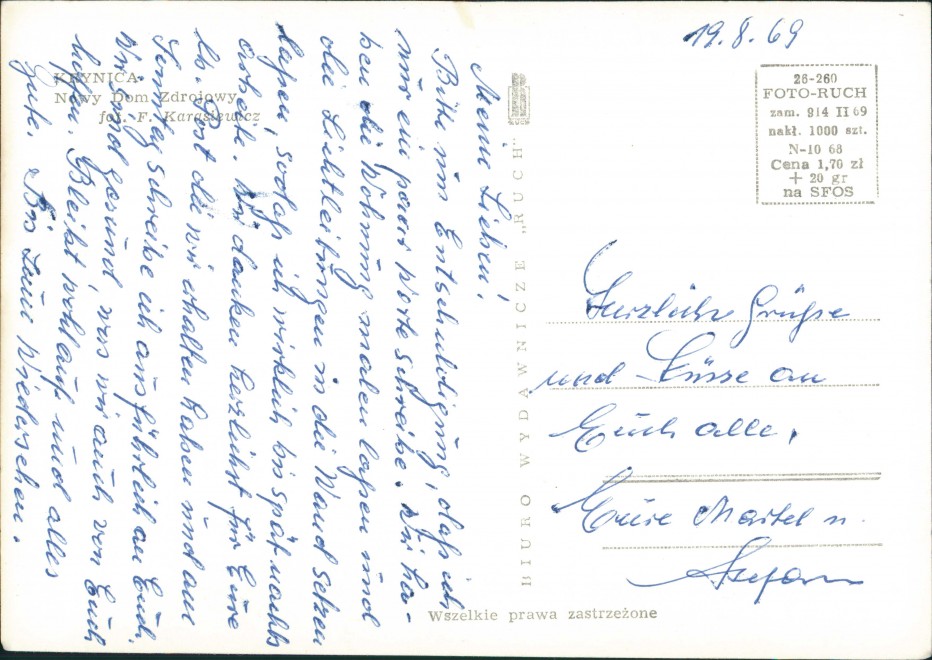 19.8.69
KRYNICA
Nowy Dom Zdrojowy
fot. F. Karasiewicz
Meine Lieben!
Bitte um Entschuldigung, daß ich
nur ein paar Worte schreibe. Wir ha-
ben die Wohnung malen laßen und
die Lichtleitungen in die Wand setzen
laßen, sodaß ich wirklich bis spät nachts
arbeite. Wir danken herzlichst für Eure
lb. Post die wir erhalten haben und am
Sonntag schreibe ich ausführlich an Euch.
Wir sind gesund, was wir auch von Euch
hoffen. Bleibt wohlauf und alles
Gute. Bis zum Wiedersehen.
BIURO WYDAWNICZE „RUCH"
26-260
FOTO-RUCH
zam. 914 II 69
nakł. 1000 szt.
N-10 68
Cena 1,70 zł
+ 20 gr
na SFOS
Herzliche Grüße
und Küsse an
Euch alle.
Eure Martel u.
Stefan
Wszelkie prawa zastrzeżone